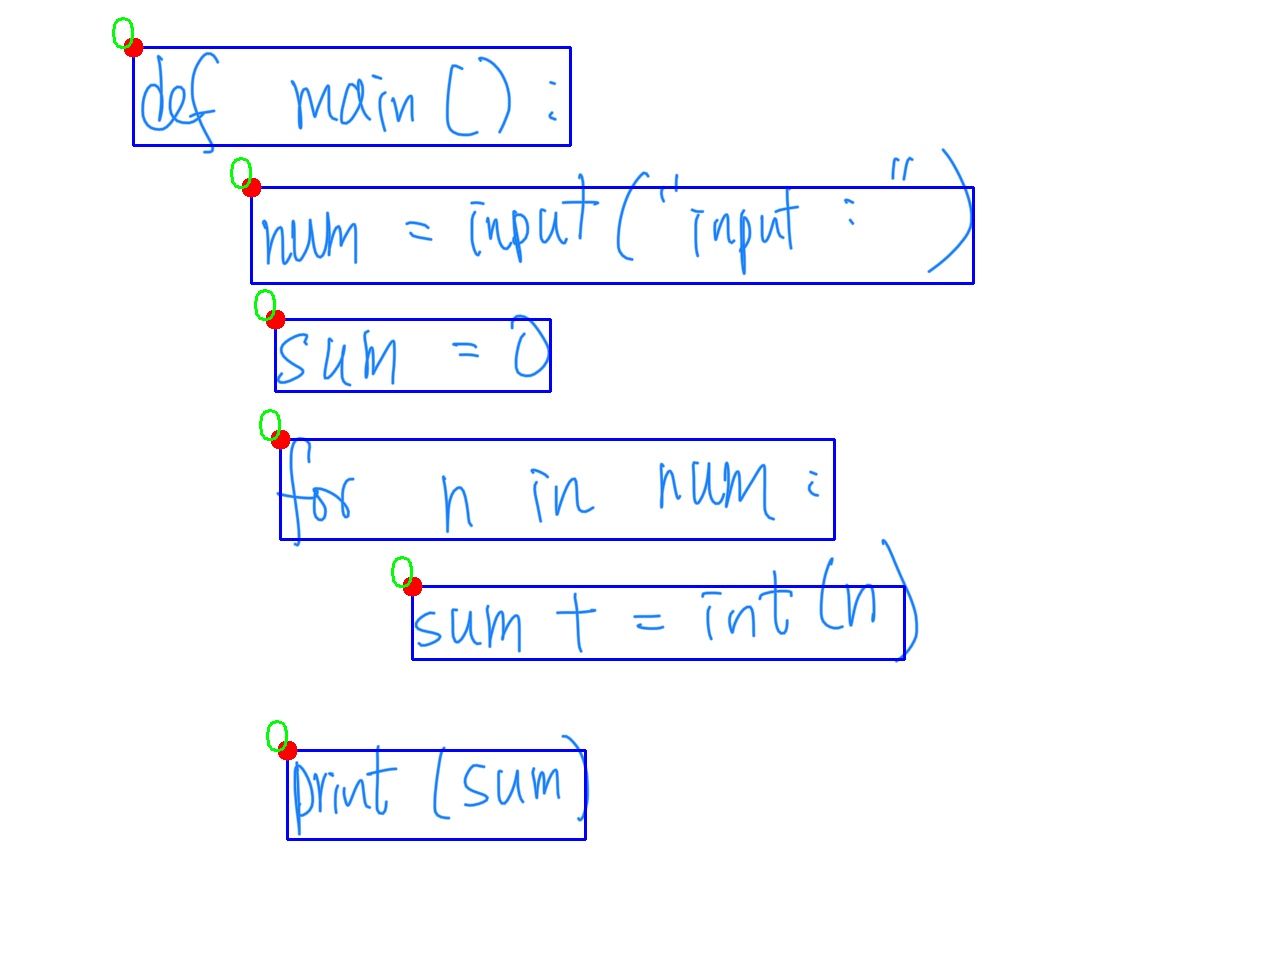 0
def main():
0
num = input("input : ")
0
sum = 0
0
for n in num:
0
sum += int(n)
0
print(sum)